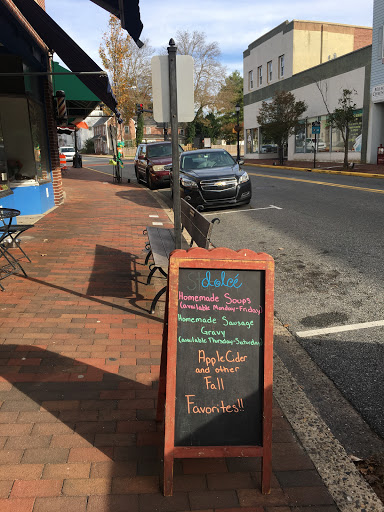 dolcé
Homemade Soups
(available Monday-Friday)
Homemade Sausage
Gravy
(available Thursday-Saturday)
Apple Cider
and other
Fall
Favorites!!